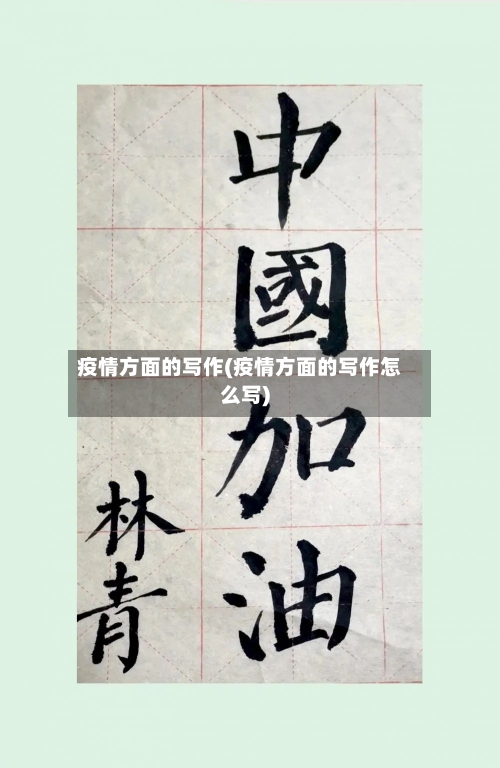 中國加油
林青
疫情方面的写作(疫情方面的写作怎
么写)